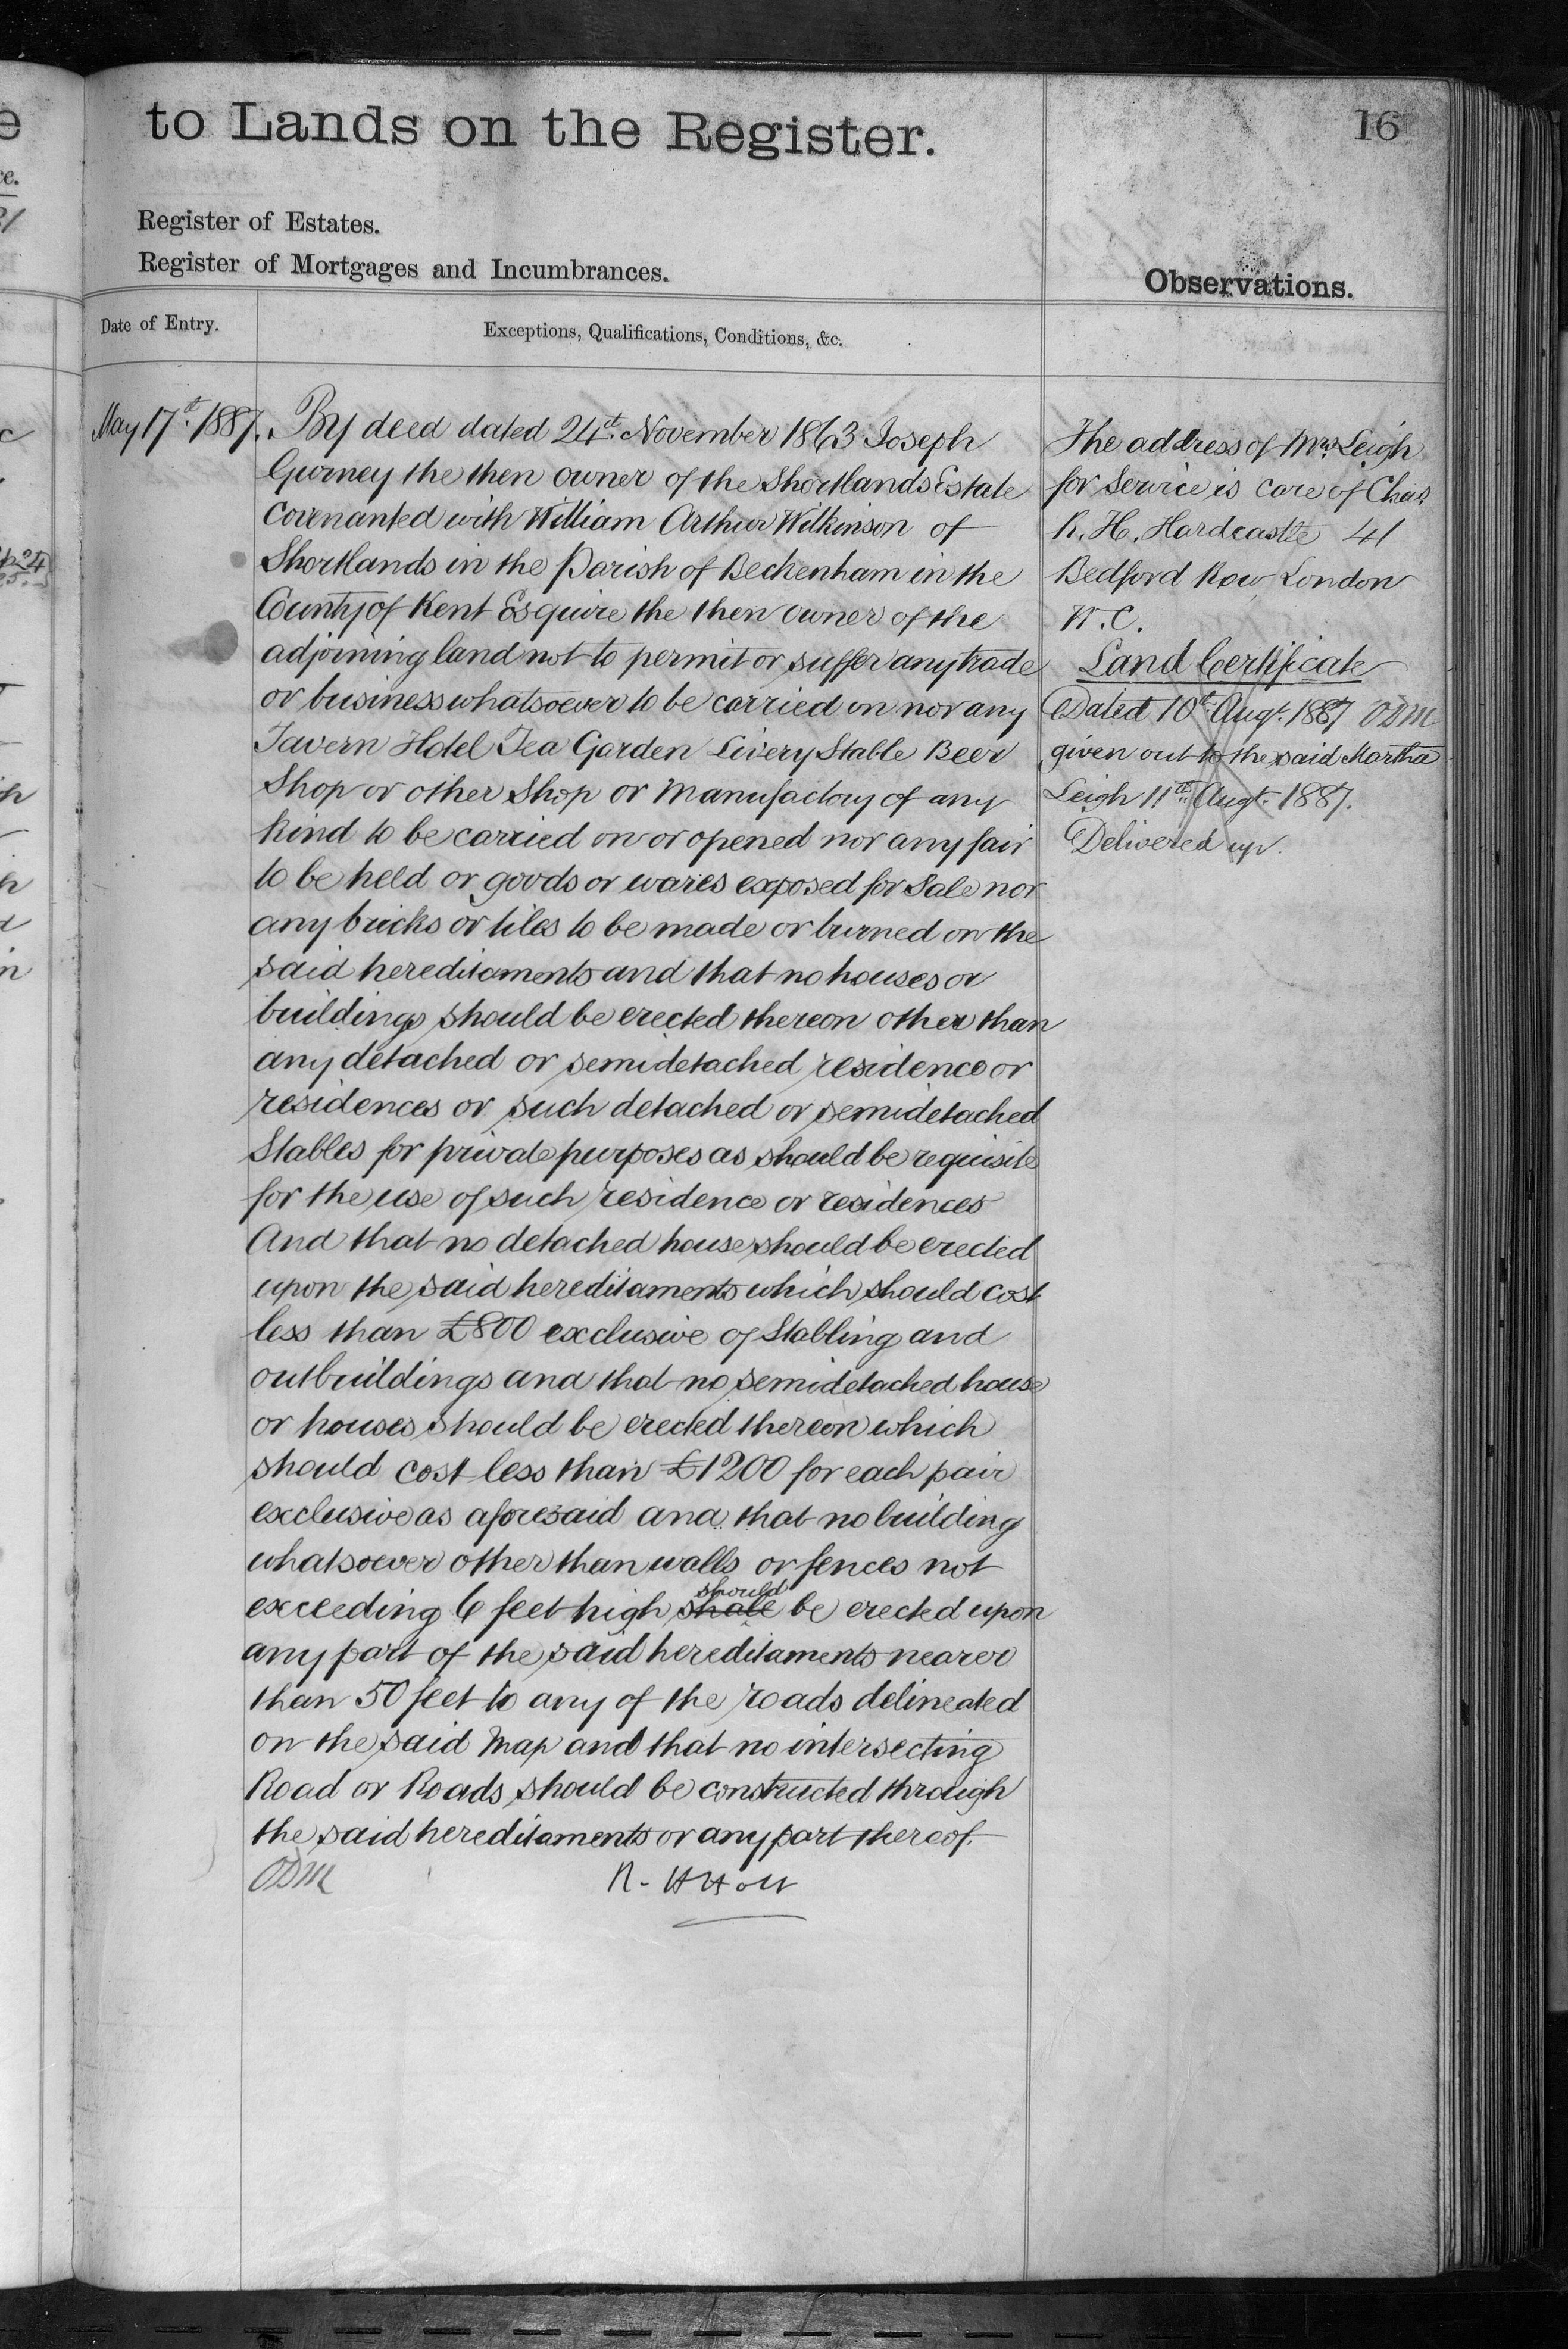 to Lands on the Register.
16
Register of Estates.
Register of Mortgages and Incumbrances.
Observations.
Date of Entry.
Exceptions, Qualifications, Conditions, &c.
May 17th 1887.
By deed dated 24th November 1863 Joseph
Gurney the then owner of the Shortlands Estate
covenanted with William Arthur Wilkinson of
Shortlands in the Parish of Beckenham in the
County of Kent Esquire the then owner of the
adjoining land not to permit or suffer any trade
or business whatsoever to be carried on nor any
Tavern Hotel Tea Garden Livery Stable Beer
Shop or other Shop or Manufactory of any
kind to be carried on or opened nor any fair
to be held or goods or wares exposed for Sale nor
any bricks or tiles to be made or burned on the
said hereditaments and that no houses or
buildings should be erected thereon other than
any detached or semidetached residence or
residences or such detached or semidetached
Stables for private purposes as should be requisite
for the use of such residence or residences
And that no detached house should be erected
upon the said hereditaments which should cost
less than £800 exclusive of Stabling and
outbuildings and that no semidetached house
or houses should be erected thereon which
should cost less than £1200 for each pair
exclusive as aforesaid and that no building
whatsoever other than walls or fences not
exceeding 6 feet high shall should be erected upon
any part of the said hereditaments nearer
than 50 feet to any of the roads delineated
on the said Map and that no intersecting
Road or Roads should be constructed through
the said hereditaments or any part thereof.
ODM
R. H Holt
The address of Mrs. Leigh
for service is care of Chas
R. H. Hardcastle 41
Bedford Row London
W.C.
Land Certificate
Dated 10th Augt. 1887 ODM
given out to the said Martha
Leigh 11th Augt. 1887.
Delivered up.